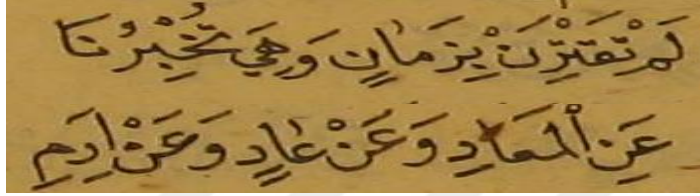 لَمْ تَقْتَرِنْ بِزَمَانٍ وَهِيَ تُخْبِرُنَا
عَنِ الْمَعَادِ وَعَنْ عَادٍ وَعَنْ اِرَمِ